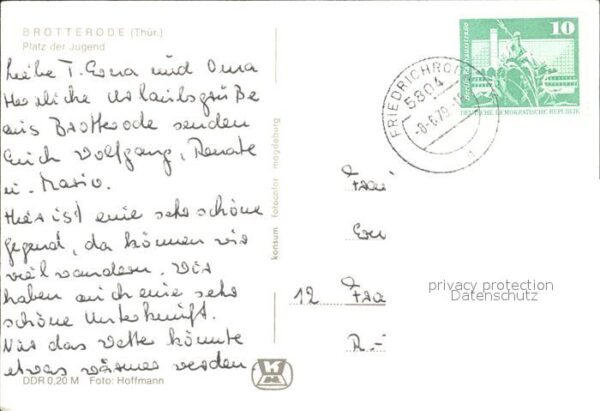 BROTTERODE (Thür.)
Platz der Jugend
Liebe T. Erna und Oma
Herzliche Urlaubsgrüße
aus Brotterode senden
Euch Wolfgang, Renate
u. Mario.
Hier ist eine sehr schöne
Gegend, da können wir
viel wandern. Wir
haben auch eine sehr
schöne Unterkunft.
Nur das Wetter könnte
etwas wärmer werden
DDR 0,20 M Foto: Hoffmann
konsum fotocolor magdeburg
10
DEUTSCHE DEMOKRATISCHE REPUBLIK
5804
12
privacy protection
Datenschutz